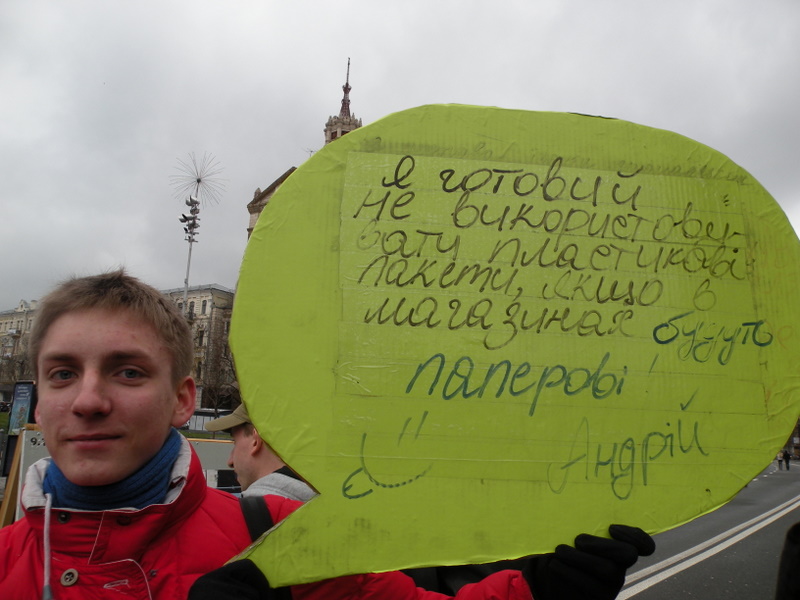 Я готовий
не використову-
вати пластикові
пакети, якщо в
магазинах будуть
паперові!
Андрій